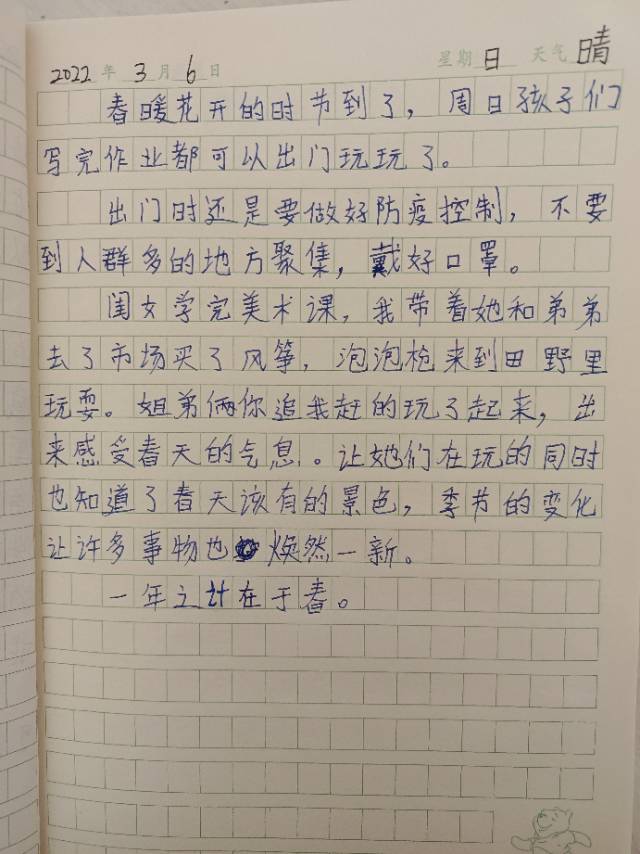 2022年3月6日 星期日 天气晴
春暖花开的时节到了，周日孩子们
写完作业都可以出门玩玩了。
出门时还是要做好防疫控制，不要
到人群多的地方聚集，戴好口罩。
闺女学完美术课，我带着她和弟弟
去了市场买了风筝，泡泡枪来到田野里
玩耍。姐弟俩你追我赶的玩了起来，出
来感受春天的气息。让她们在玩的同时
也知道了春天该有的景色，季节的变化
让许多事物也焕然一新。
一年之计在于春。